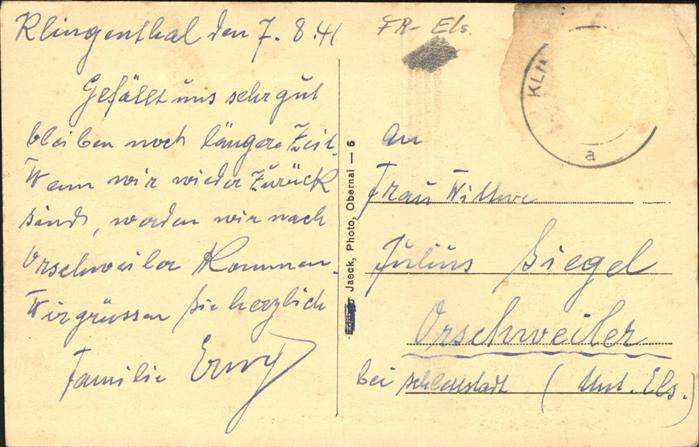 Klingenthal den 7. 8. 41
Gefällt uns sehr gut
bleiben noch längere Zeit.
Wenn wir wieder Zurück
sind, werden wir nach
Orschweiler Kommen.
Wir grüssen Sie herzlich
Familie Erny
FR- Els.
KLIN
a
Jaeck, Photo, Obernai — 6
An
Frau Wittwe
Julius Siegel
Orschweiler
bei Schlettstadt (Unt. Els.)